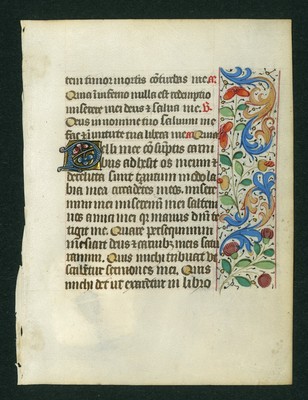 tem timor mortis cōturbat me. 
Quia ī inferno nulla est redemptio
miserere mei deus et salva me. V
Deus in nomine tuo salvum me
fac et ī virtute tua libera me. Quia
Pelli mee cōsūptis carni
bus adhesit os meum et
derelicta sunt tātum modo la
bia mea circa dētes meos. misere
mini mei miseremī mei saltem
vos amici mei qr manus dñi te
tigit me. Quare persequimini
me sicut deus et carnibꝫ meis satu
ramini. Quis michi tribuat ut
scribātur sermones mei. Quis
michi det ut exarētur in libro